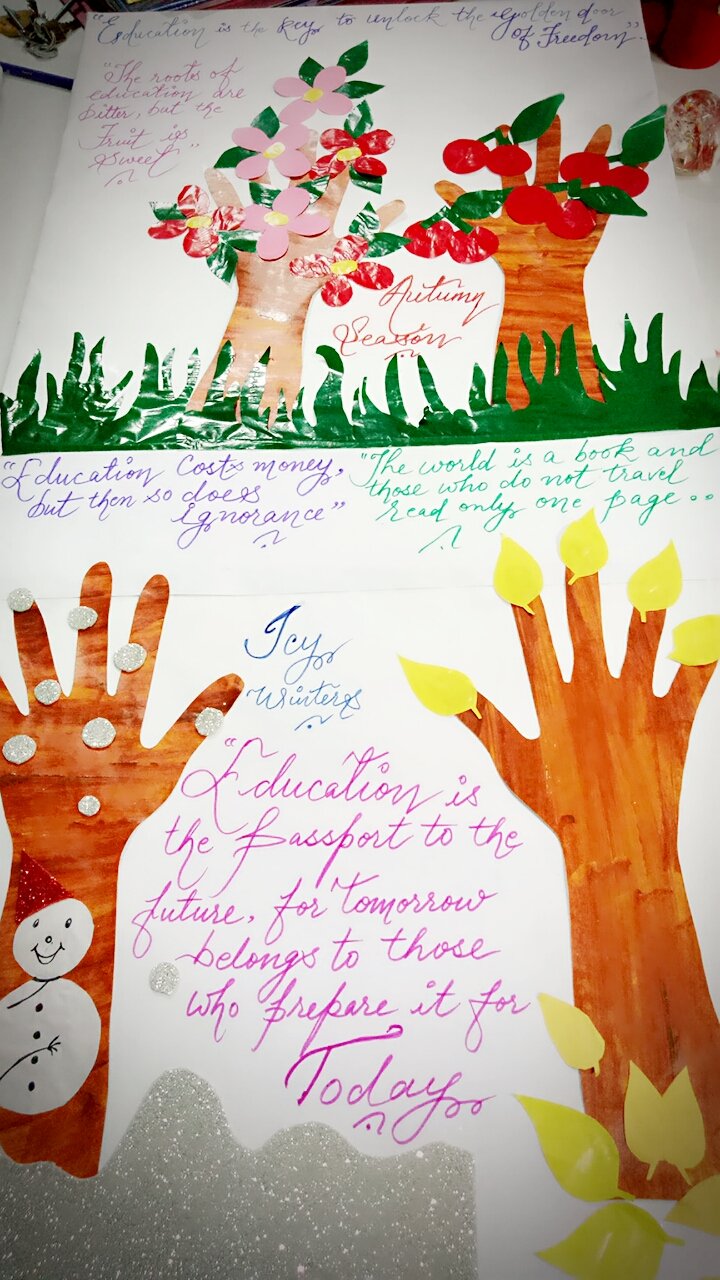 "Education is the key to unlock the Golden door
of Freedom".
"The roots of
education are
bitter, but the
Fruit is
Sweet"
Autumn
Season
"Education Costs money,
but then so does
ignorance"
"The world is a book and
those who do not travel
read only one page...
Icy
Winters
"Education is
the Passport to the
future, for tomorrow
belongs to those
who prepare it for
Today